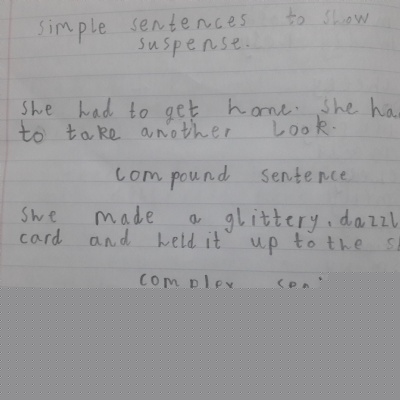 simple sentences to show
suspense.
She had to get home. She
to take another look.
compound sentence
She made a glittery,
card and held it up to the
complex